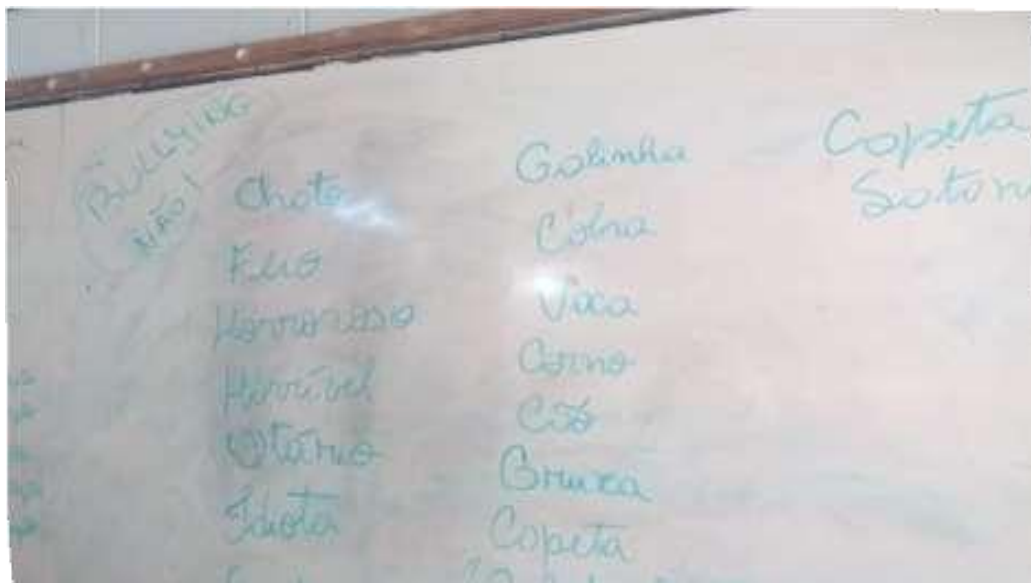 BULLYING
NÃO!
Chato
Feio
Horroroso
Horrível
Otário
Idiota
Galinha
Cobra
Vaca
Corno
Cão
Bruxa
Capeta
Capeta